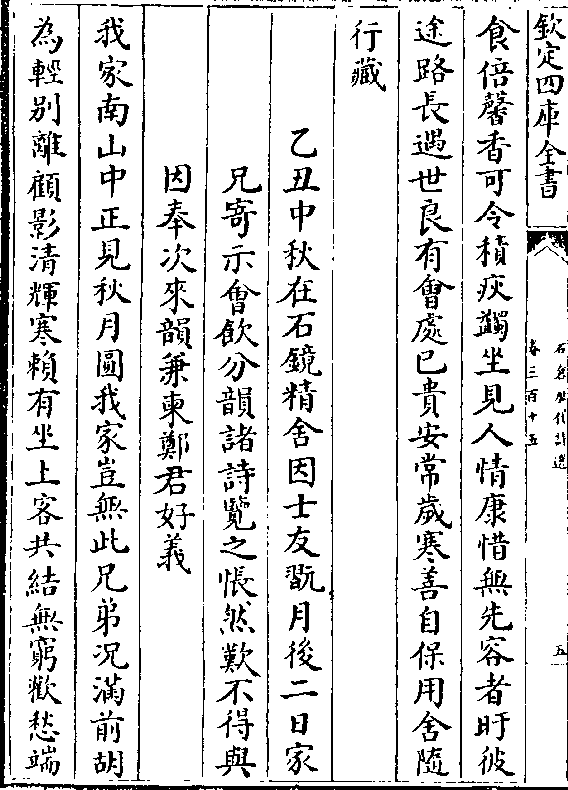 欽定四庫全書
石倉歷代詩選
卷三百十五
五
食倍馨香可令積疢蠲坐見人情康惜無先容者盱彼
途路長遇世良有會處已貴安常歲寒善自保用舍隨
行藏
乙丑中秋在石鏡精舍因士友翫月後二日家
兄寄示會飲分韻諸詩覽之悵然歎不得與
因奉次來韻兼柬鄭君好義
我家南山中正見秋月圓我家豈無此兄弟況滿前胡
為輕别離顧影清輝寒賴有坐上客共結無窮歡愁端